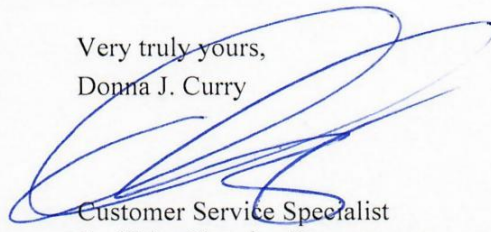 Very truly yours,
Donna J. Curry
Customer Service Specialist